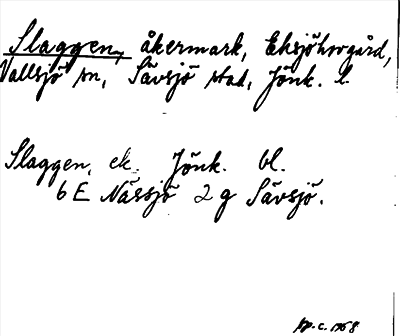 Slaggen, åkermark, Eksjöhovgård,
Vallsjö sn, Sävsjö stad, Jönk. l.
Slaggen, ek. Jönk. bl.
6 E Nässjö 2 g Sävsjö.
c. 1968